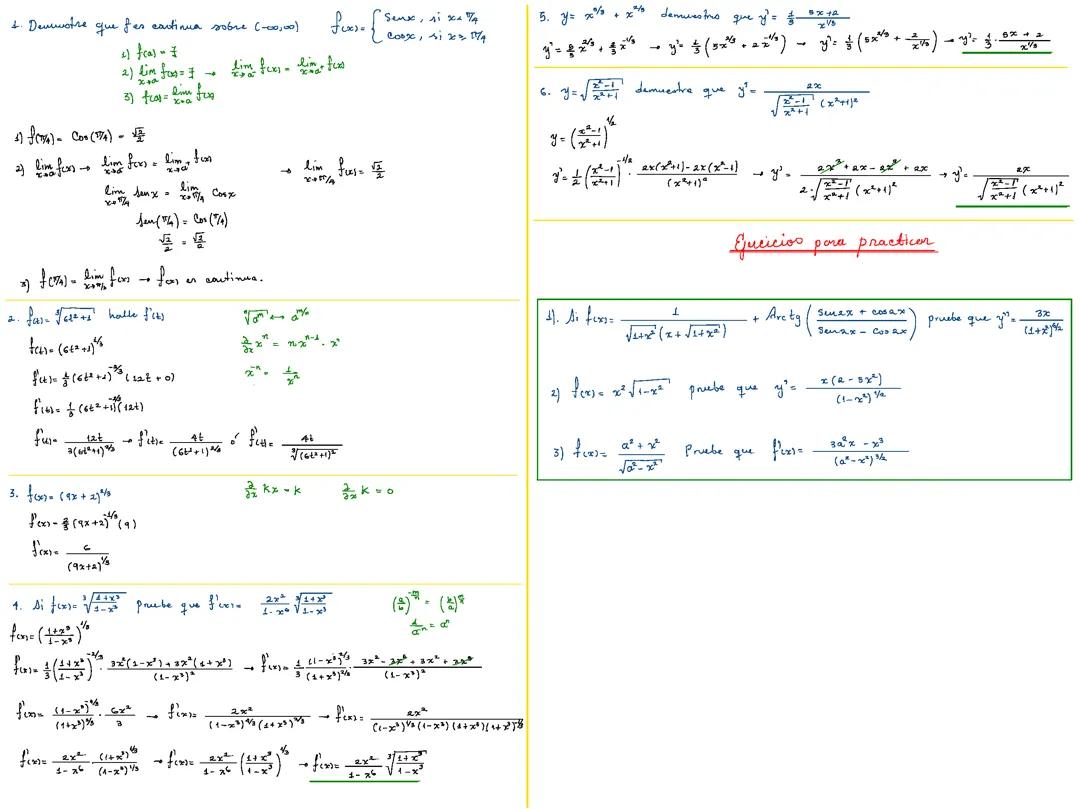 1. Demuestre que f es continua sobre (-∞,∞) f(x) = { Senx, si x < π/4
cosx, si x ≥ π/4
1) f(a) = ∃
2) lim x→a f(x) = ∃ → lim x→a⁻ f(x) = lim x→a⁺ f(x)
3) f(a) = lim x→a f(x)
1) f(π/4) = Cos(π/4) = √2/2
2) lim x→a f(x) → lim x→a⁻ f(x) = lim x→a⁺ f(x) → lim x→π/4 f(x) = √2/2
lim x→π/4 Senx = lim x→π/4 Cosx
Sen(π/4) = Cos(π/4)
√2/2 = √2/2
3) f(π/4) = lim x→π/4 f(x) → f(x) es continua.
2. f(t) = ∛(6t²+1) halle f'(t) ⁿ√aᵐ ↔ a^(m/n)
f(t) = (6t²+1)^(1/3) ∂/∂x xⁿ = n xⁿ⁻¹ · x'
f'(t) = 1/3 (6t²+1)^(-2/3) (12t + 0) x⁻ⁿ = 1/xⁿ
f'(t) = 1/3 (6t²+1)^(-2/3) (12t)
f'(t) = 12t / 3(6t²+1)^(2/3) → f'(t) = 4t / (6t²+1)^(2/3) ó f'(t) = 4t / ∛(6t²+1)²
3. f(x) = (9x+2)^(2/3) ∂/∂x Kx = K ∂/∂x K = 0
f'(x) = 2/3 (9x+2)^(-1/3) (9)
f'(x) = 6 / (9x+2)^(1/3)
4. Si f(x) = ∛((1+x³)/(1-x³)) pruebe que f'(x) = 2x²/(1-x⁶) ∛((1+x³)/(1-x³)) (a/b)^(-m/n) = (b/a)^(m/n)
1/a⁻ⁿ = aⁿ
f(x) = ((1+x³)/(1-x³))^(1/3)
f'(x) = 1/3 ((1+x³)/(1-x³))^(-2/3) · (3x²(1-x³)+3x²(1+x³))/(1-x³)² → f'(x) = 1/3 (1-x³)^(2/3)/(1+x³)^(2/3) · (3x² - 3x⁵ + 3x² + 3x⁵)/(1-x³)²
f'(x) = (1-x³)^(-4/3)/(1+x³)^(2/3) · 6x²/3 → f'(x) = 2x² / (1-x³)^(4/3) (1+x³)^(2/3) → f'(x) = 2x² / (1-x³)^(1/3) (1-x³) (1+x³) (1+x³)^(-1/3)
f'(x) = 2x²/(1-x⁶) · (1+x³)^(1/3)/(1-x³)^(1/3) → f'(x) = 2x²/(1-x⁶) ((1+x³)/(1-x³))^(1/3) → f'(x) = 2x²/(1-x⁶) ∛((1+x³)/(1-x³))
5. y = x^(5/3) + x^(2/3) demuestre que y' = 1/3 · (5x+2)/x^(1/3)
y' = 5/3 x^(2/3) + 2/3 x^(-1/3) → y' = 1/3 (5x^(2/3) + 2x^(-1/3)) → y' = 1/3 (5x^(2/3) + 2/x^(1/3)) → y' = 1/3 · (5x+2)/x^(1/3)
6. y = √((x²-1)/(x²+1)) demuestre que y' = 2x / √((x²-1)/(x²+1)) (x²+1)²
y = ((x²-1)/(x²+1))^(1/2)
y' = 1/2 ((x²-1)/(x²+1))^(-1/2) · (2x(x²+1) - 2x(x²-1))/(x²+1)² → y' = (2x³ + 2x - 2x³ + 2x) / 2·√((x²-1)/(x²+1)) (x²+1)² → y' = 2x / √((x²-1)/(x²+1)) (x²+1)²
Ejercicios para practicar
1). Si f(x) = 1 / √(1+x²) (x+√(1+x²)) + Arctg ((sen2x + cos2x)/(sen2x - cos2x)) pruebe que y'' = 3x/(1+x²)^(5/2)
2) f(x) = x² √(1-x²) pruebe que y' = x(2-3x²)/(1-x²)^(1/2)
3) f(x) = (a²+x²)/√(a²-x²) Pruebe que f'(x) = (3a²x - x³)/(a²-x²)^(3/2)